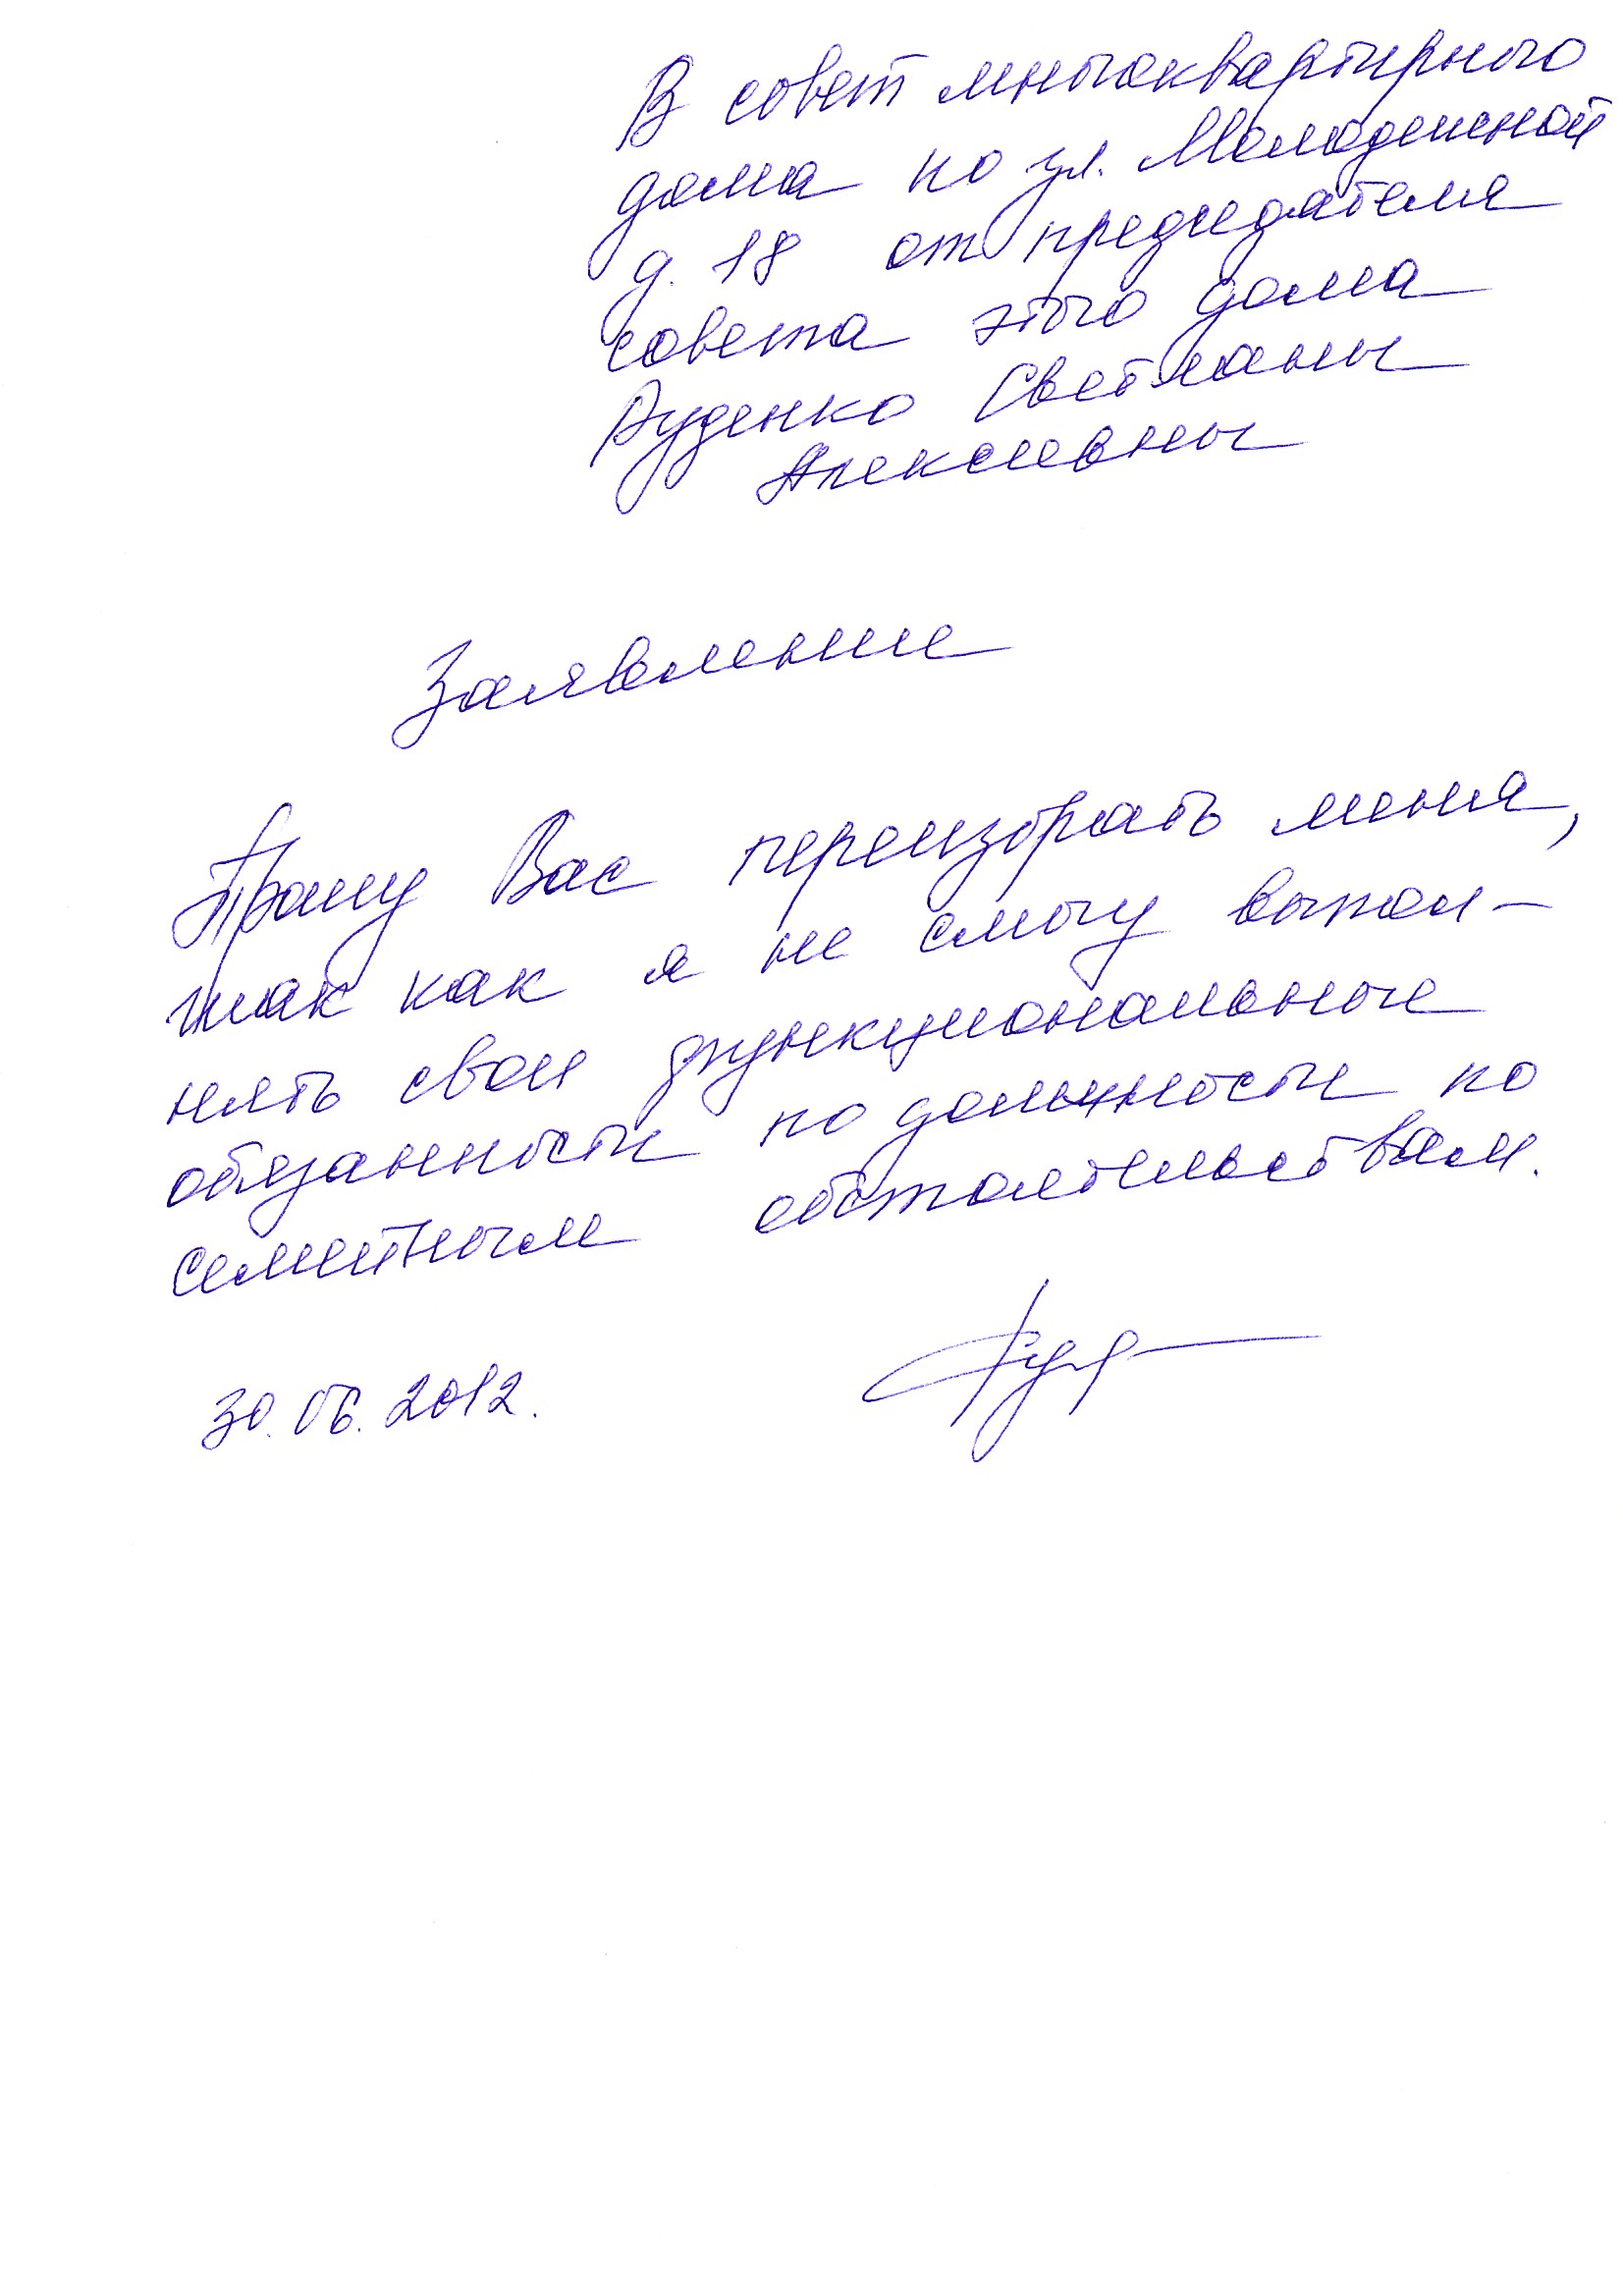 В совет многоквартирного
дома по ул. Молодежной
д. 18 от председателя
совета этого дома
Руденко Светланы
Алексеевны
Заявление
Прошу Вас переизбрать меня,
так как я не смогу выпол-
нять свои функциональные
обязанности по должности по
семейным обстоятельствам.
30.06.2012.